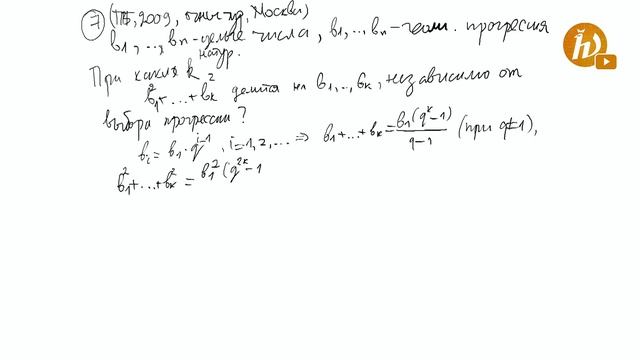 ⑦ (ТГ, 2009, очный тур, Москва)
b₁, ..., bₙ - целые числа, b₁, ... bₙ - геом. прогрессия
натур.
При каких k
b₁²+...+bₖ² делится на b₁...,bₖ, независимо от
выбора прогрессии?
bᵢ = b₁·qⁱ⁻¹, i=1,2,... ⇒ b₁+...+bₖ = b₁(qᵏ-1)/(q-1) (при q≠1),
b₁²+...+bₖ² = b₁²(q²ᵏ-1